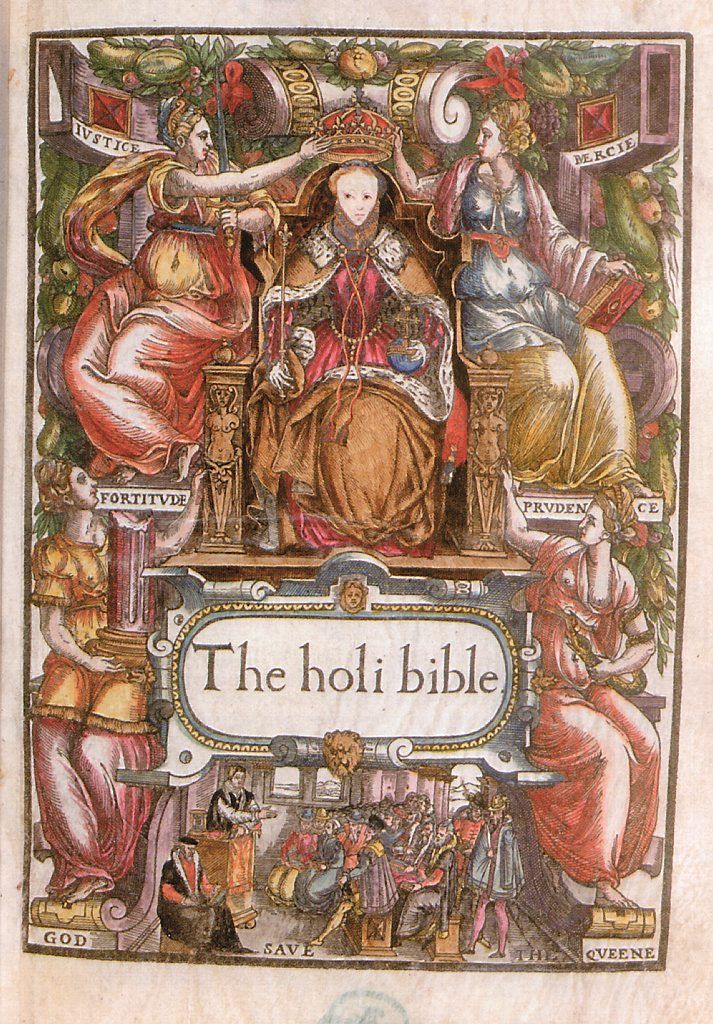 IVSTICE
MERCIE
FORTITUDE
PRUDENCE
The holi bible
GOD SAVE THE QVEENE